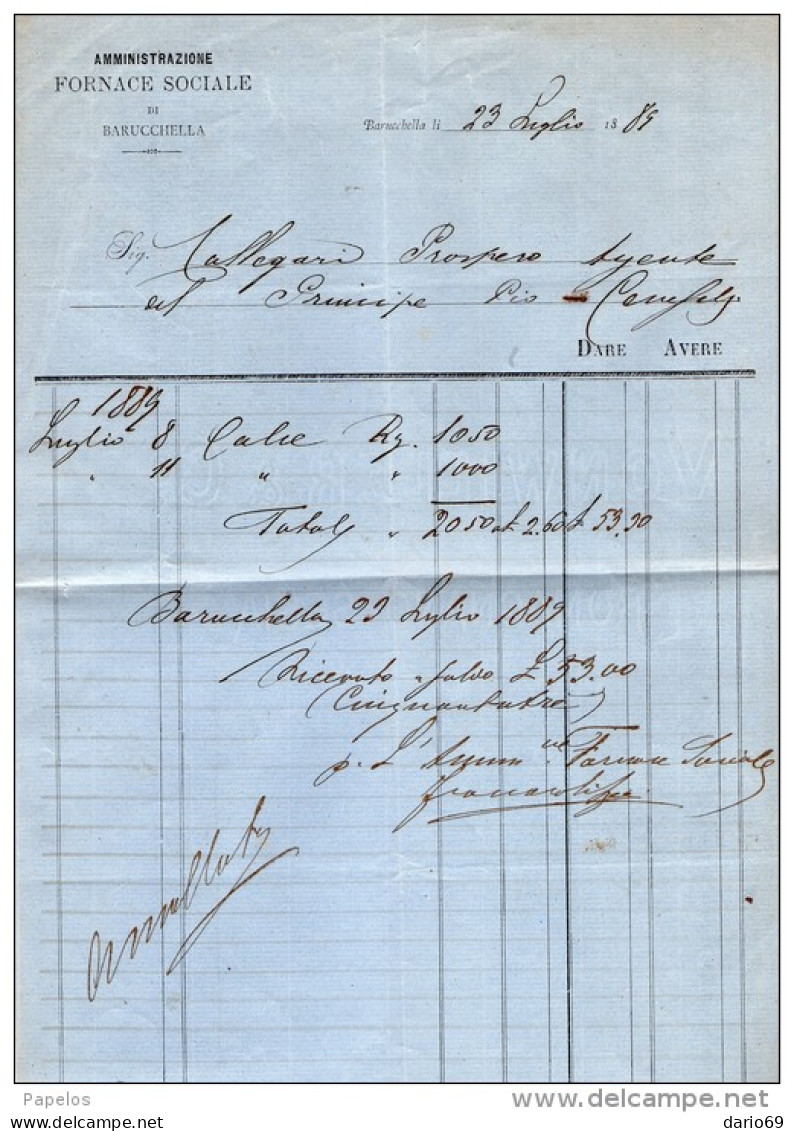 AMMINISTRAZIONE
FORNACE SOCIALE
DI
BARUCCHELLA
Barucchella li 23 Luglio 1889
Sig. Callegari Prospero Agente
del Principe Pio - 
DARE AVERE
1889
Luglio 8 Calce Kg. 1050
" 11 " " 1000
Totale " 2050 at. 2.60 £ 53.30
Barucchella 23 Luglio 1889
Ricevuto a saldo £ 53.00
(Cinquantatre)
p. L'Ammne Fornace Sociale
Annullato
Papelos
www.delcampe.net
dario69